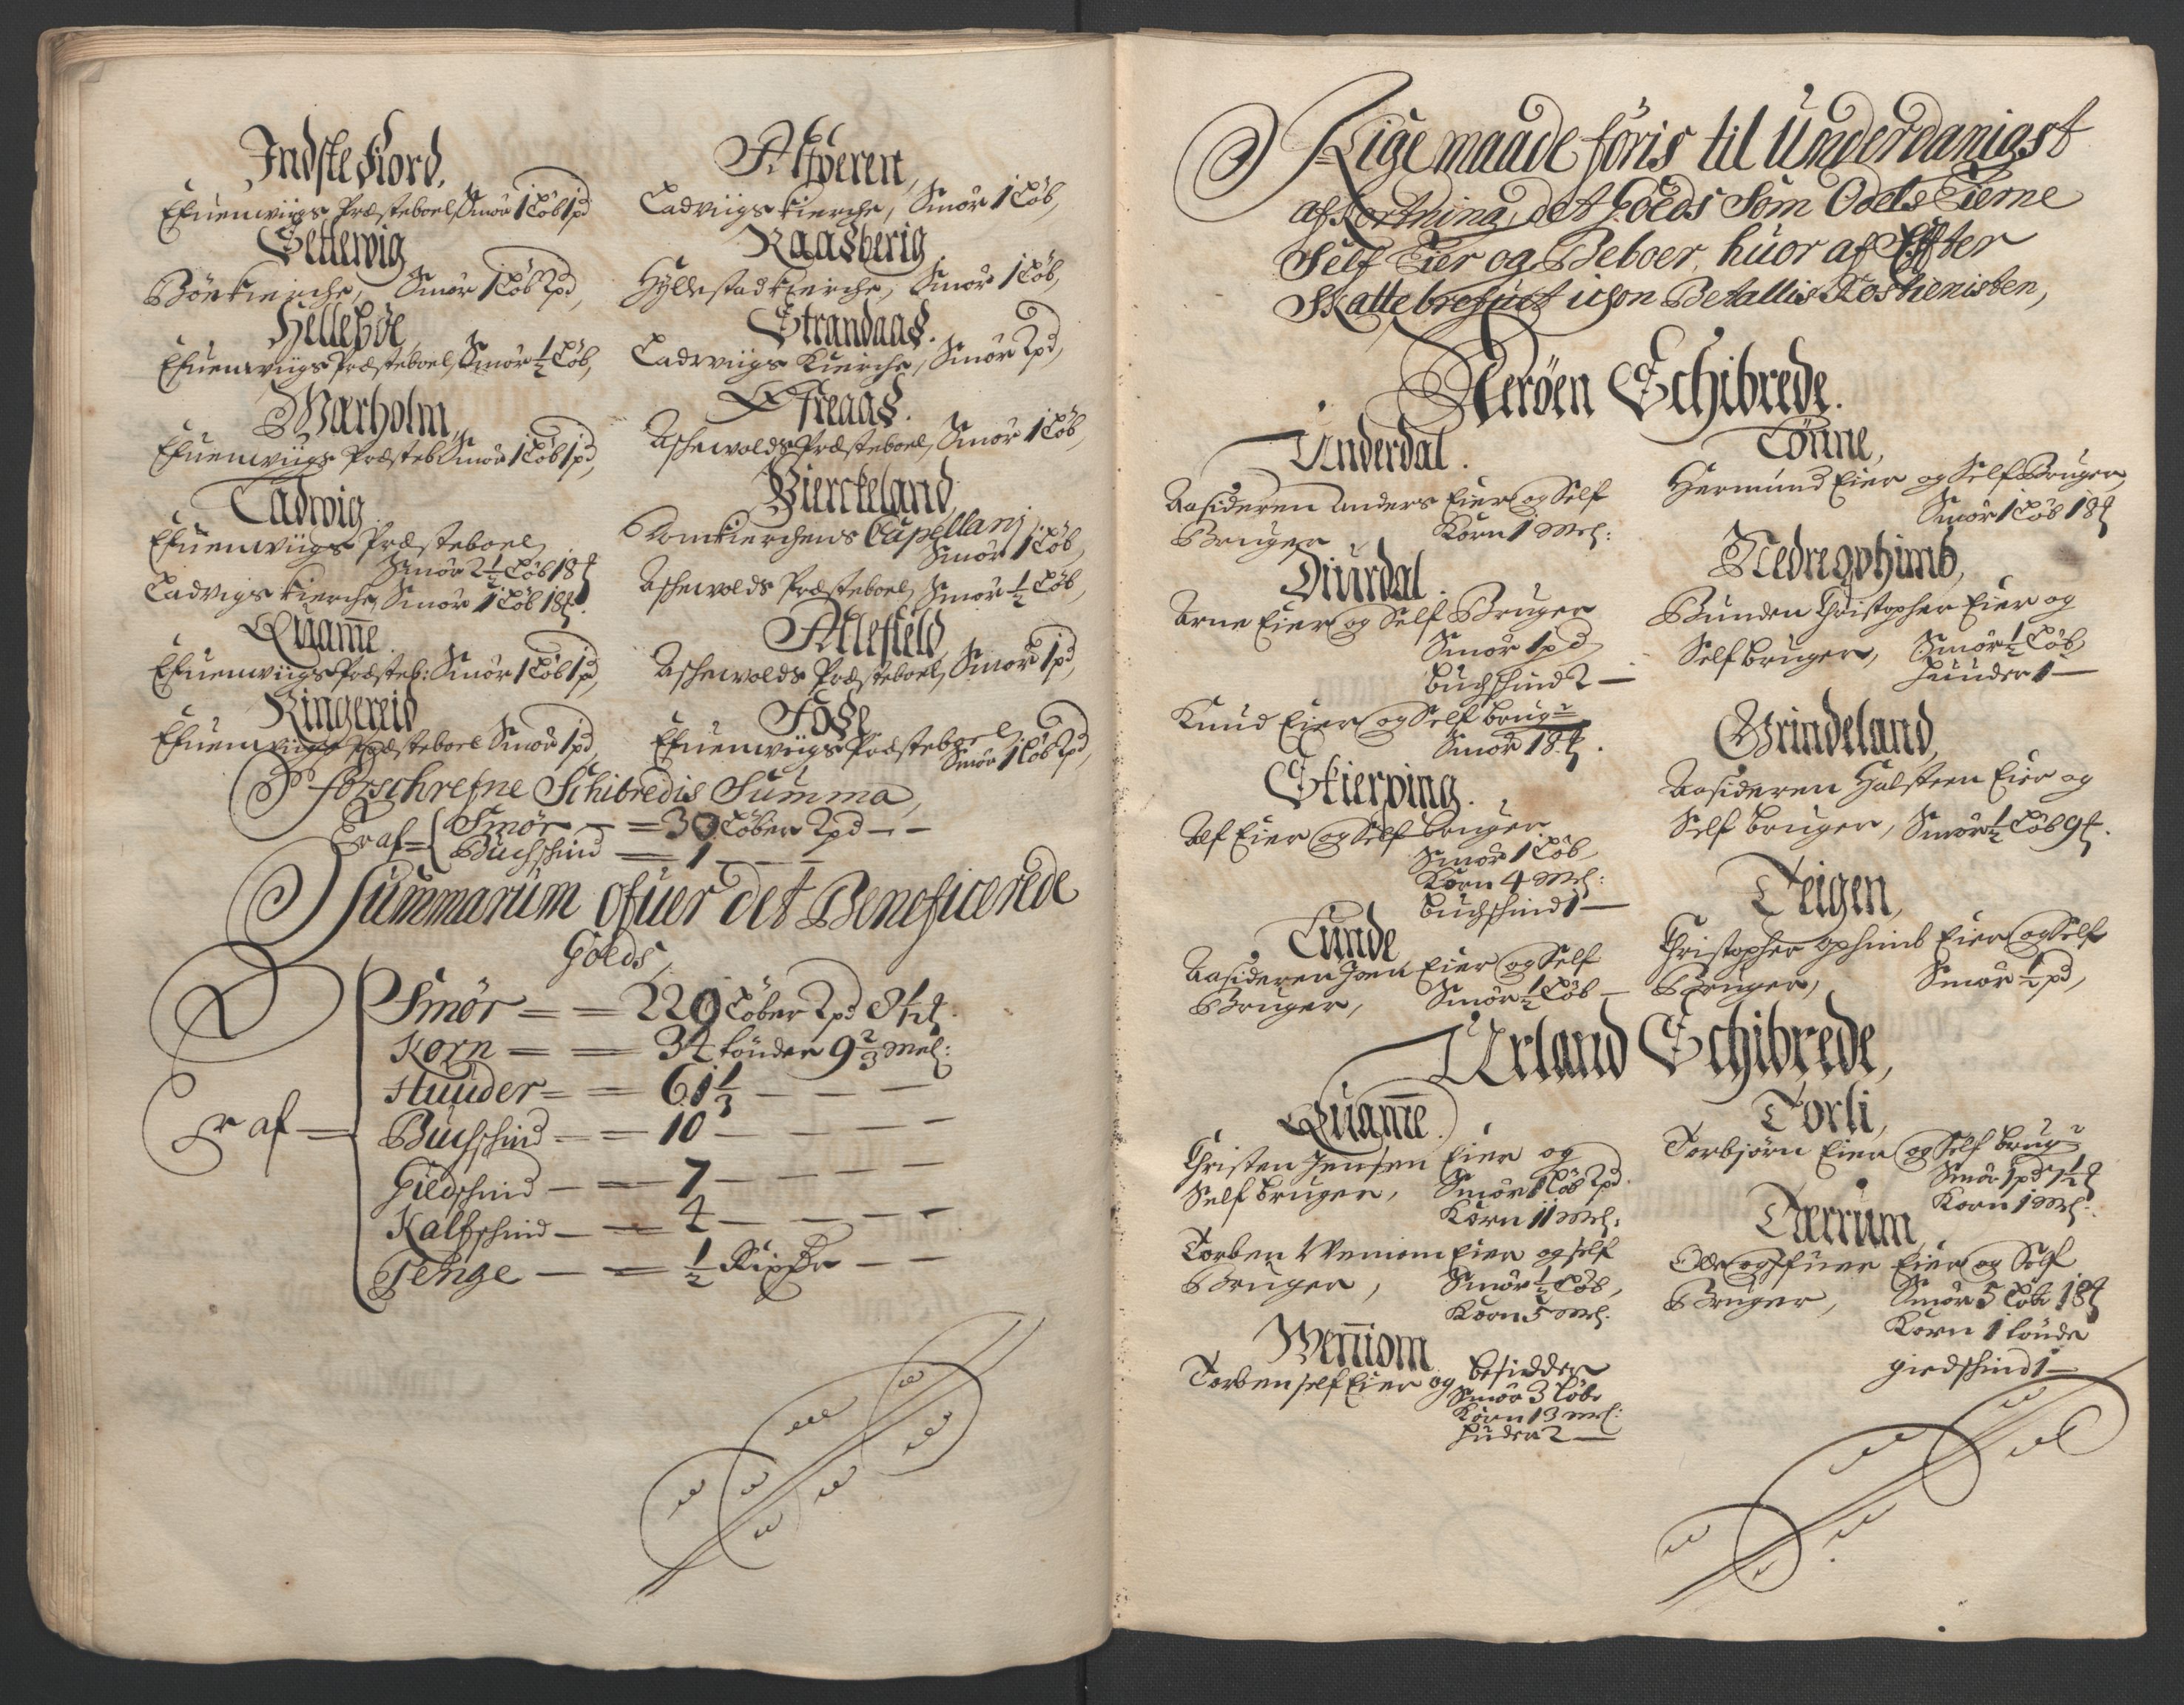 Indste Fiord,
Efuenwigs Præsteboel, Smør 1 Løb 1 pd
Settewig
Böe kierche, Smør 1 Løb 2 pd,
Hellebøe
Efuenwigs Præsteboel, Smør ½ Løb,
Warholm,
Efuenwiigs Præsteb: Smør 1 Løb 1 pd,
Ladwig
Efuenwiigs Præsteboel,
Smør 2½ Løb 18 ℔
Ladvigs Kierche, Smør 1 Løb 18 ℔.
Quame
Efuenwiigs Præsteb: Smør 1 Løb 1 pd,
Ringereid
Efuenwiigs Præsteboel Smør 1 pd,
Ladviigs Kierche, Smør 1 Løb,
Raasberig
Hyllestad Kierche, Smør 1 Løb,
Strandaas.
Ladwiigs Kierche, Smør 2 pd,
Askewolds Præsteboel, Smør 1 Løb,
Birckeland
Domkierchens Capellani
Smør 1 Løb,
Askewolds Præsteboel, Smør ½ Løb,
Atlefield
Askewolds Præsteboel, Smør 1 pd,
Fosse
Efuenwiigs Præsteboel,
Smør 1 Løb 2 pd,
forschrefne Schibredis Summa,
Er af = Smør — = 30 Løber 2 pd — —
Buchschind — = 1 — — —
Summarum ofuer det Beneficerede
Goeds,
Er af — Smør = = 220 Løber 2 pd
Korn = = 34 tønder 9⅔ Mel:
Huuder = = 61⅓ — — —
Buchschind = = 10 — — — —
Giedschind — = 7 — — — —
Kalfschind — = 4 — — — —
Penge — = ½ Rixdr — —
I Lige maade føris til Underdanigst
afkortning, det Goeds Som Odels Eierne
Self Eier og Beboer, huor af Effter
Skatte brefuet igion Betallis Rostienisten,
Aerøen Schibrede.
Underdal.
Aasideren Anders Eier og Self
Bruger Korn 1 Mel:
Diurdal.
Arne Eier og Self Bruger
Smør 1 pd,
Buchschind 2 —
Knud Eier og Self brugr
Smør 18 ℔.
Skierping.
Alf Eier og Self bruger
Smør 1 Løb,
Korn 4 Mel:
Buchschind 1 —
Lunde
Aasideren Joen Eier og Self
Bruger, Smør ½ Løb —
Tønne,
Hermund Eier og Self Bruger,
Smør 1 Løb 18 ℔
Nedre Ophimb,
Bunden Christopher Eier og
Self bruger, Smør ½ Løb,
Huuder 1 —
Grindeland,
Aasideren Halsteen Eier og
Self bruger, Smør ½ Løb 9 ℔.
Teigen,
Christopher Ophimb Eier og Self
Bruger, Smør ½ pd,
Urland Schibrede,
Quame.
Christen Jensen Eier og
Self bruger, Smør 1 Løb 2 pd.
Korn 11 Mel:
Torben Weniom Eier og self
Bruger, Smør ½ Løb,
Korn 5 Mel.
Weniom
Torben self Eier og besidder
Smør 3 Løbe
Korn 13 Mel:
Huder 2 —
Torli,
Torbjørn Eier og Self brugr
Smør 1 pd 1½ ℔
Korn 1 Mel:
Tærrum,
Ole og Ifuer Eier og Self
Bruger, Smør 5 Løbe 18 ℔
Korn 1 tønde
giedschind 1 —